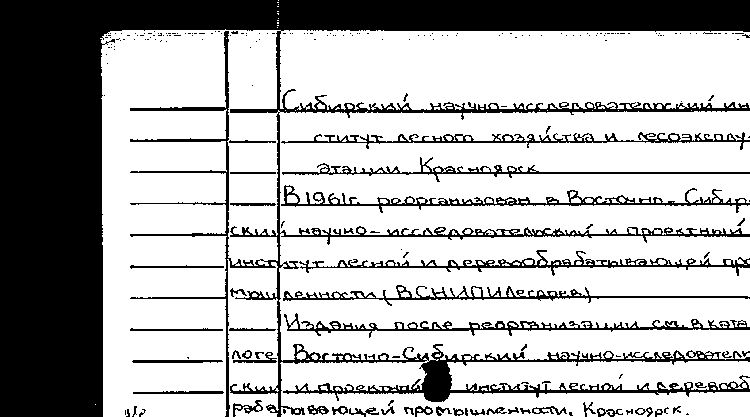 Сибирский научно-исследовательский ин
ститут лесного хозяйства и лесоэксплу-
атации. Красноярск
В 1961г. реорганизован в Восточно-Сибир-
ский научно-исследовательский и проектный
институт лесной и деревообрабатывающей про
мышленности (ВСНИПИЛесдрев)
Издания после реорганизации см. в ката
логе Восточно-Сибирский научно-исследователь
ский и проектный институт лесной и деревооб
рабатывающей промышленности. Красноярск.